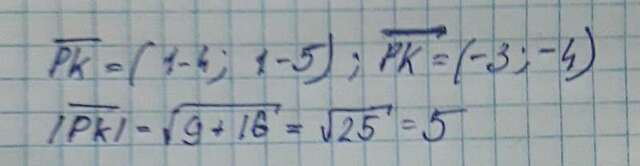 PK = (1-4; 1-5); PK = (-3; -4)
|PK| = √9+16 = √25 = 5